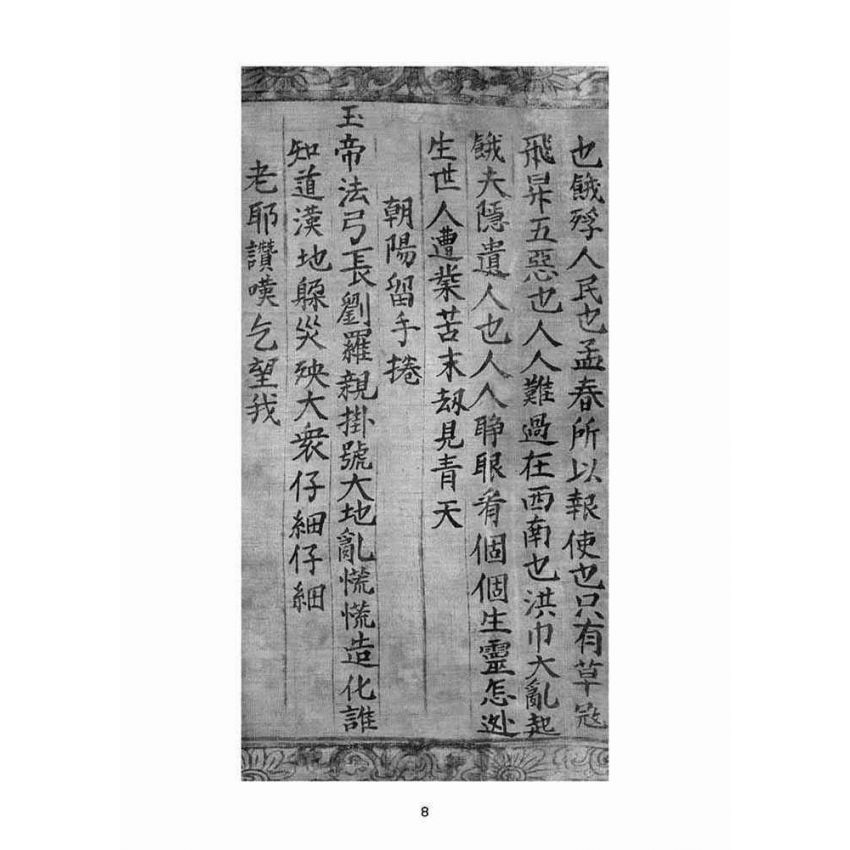 也餓殍人民也孟春所以報使也只有草寇
飛昇五惡也人人難過在西南也洪巾大亂起
餓夫隱遺人也人人睜眼看個個生靈怎逃
生世人遭業苦末劫見青天
朝陽留手捲
玉帝法弓長劉羅親掛號大地亂慌慌造化誰
知道漢地躲災殃大衆仔細仔細
老耶讚嘆乞望我
8